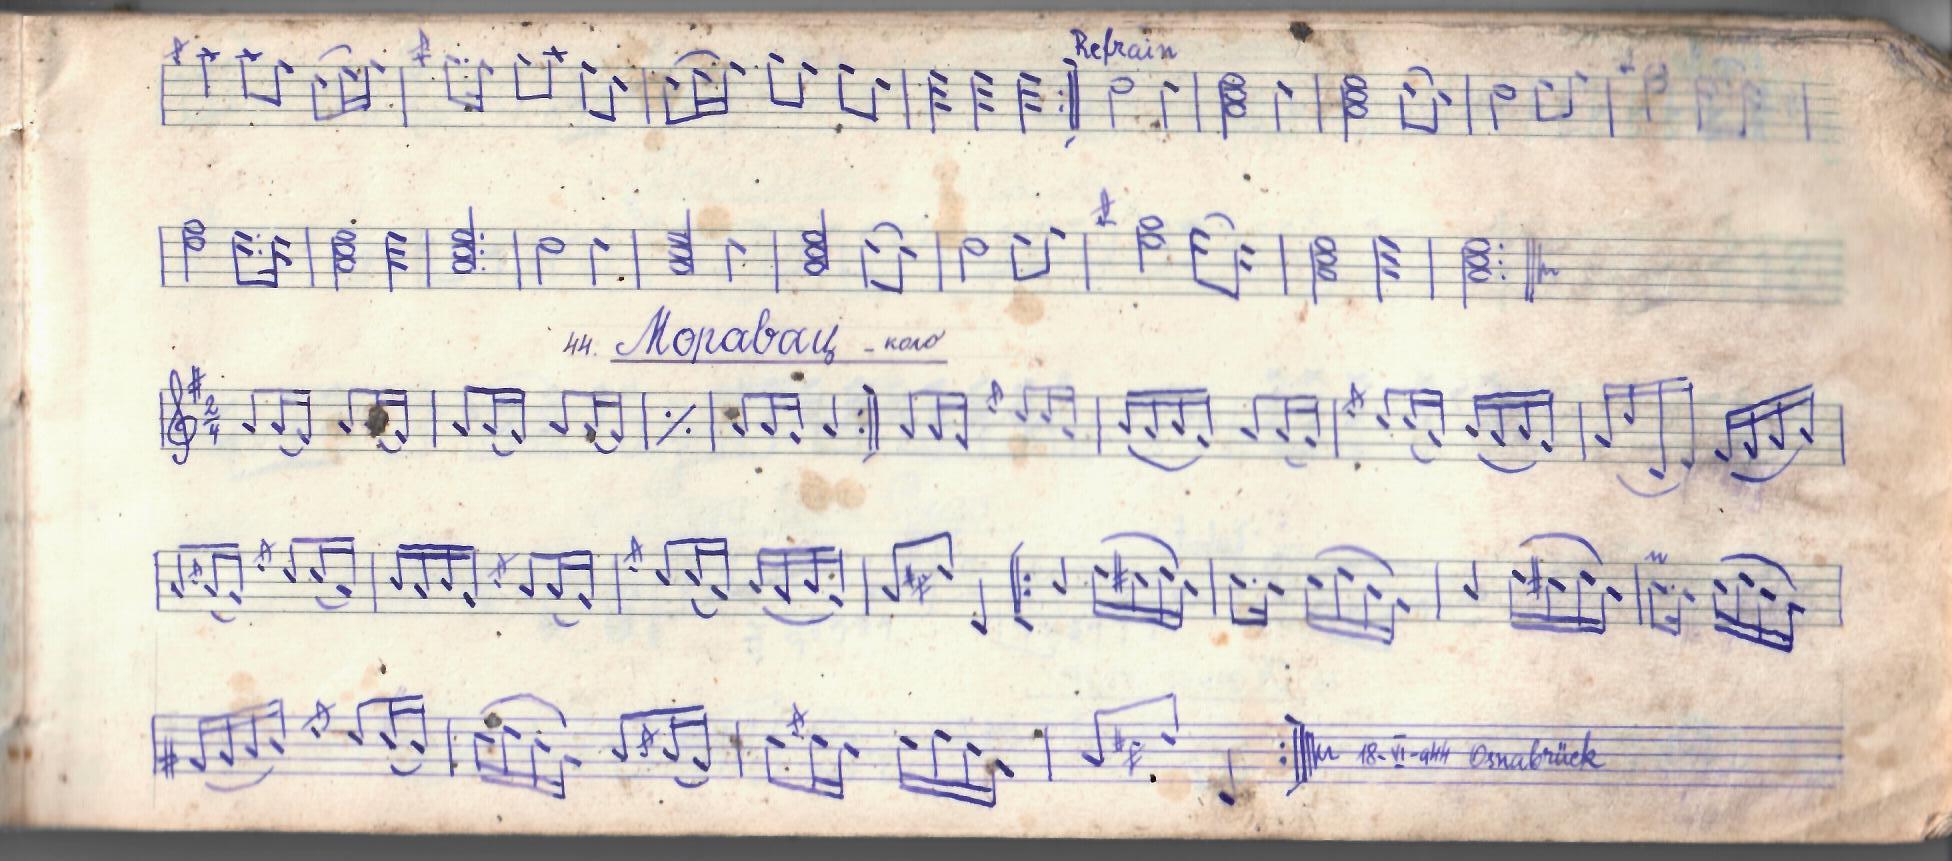 Refrain
44. Моравац - коло
2
4
18-VI-944 Osnabrück